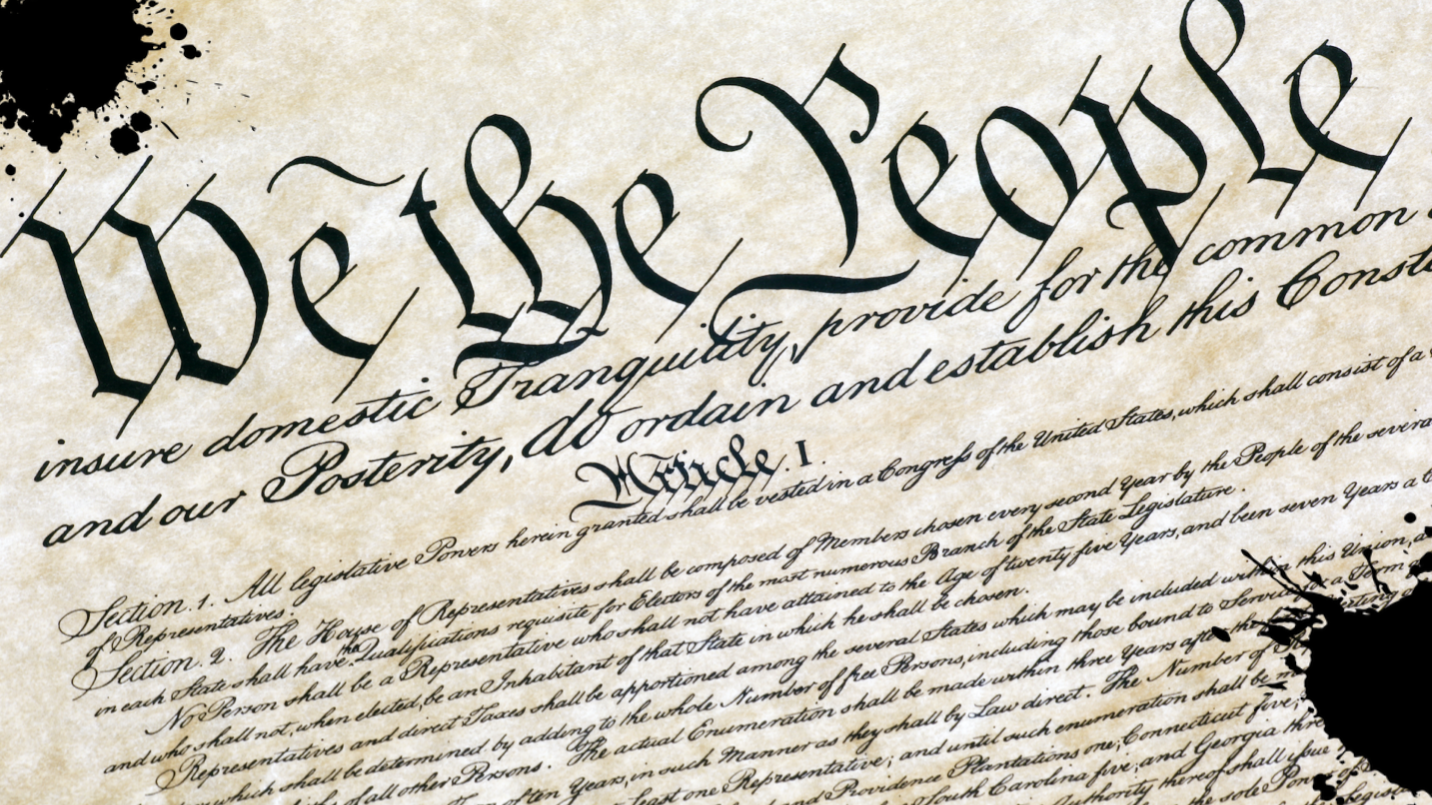 We the People
insure domestic Tranquility, provide for the common
and our Posterity, do ordain and establish this Const
Article. I.
Section. 1. All legislative Powers herein granted shall be vested in a Congreſs of the United States, which shall consist of a
of Representatives.
Section. 2. The House of Representatives shall be composed of Members chosen every second Year by the People of the severa
in each State shall have the Qualifications requisite for Electors of the most numerous Branch of the State Legislature.
No Person shall be a Representative who shall not have attained to the Age of twenty five Years, and been seven Years a C
and who shall not, when elected, be an Inhabitant of that State in which he shall be chosen.
Representatives and direct Taxes shall be apportioned among the several States which may be included within this Union, a
which shall be determined by adding to the whole Number of free Persons, including those bound to Service for a Term
of all other Persons. The actual Enumeration shall be made within three Years after the
of ten Years, in such Manner as they shall by Law direct. The Number of
least one Representative; and until such enumeration shall be
and Providence Plantations one, Connecticut five,
South Carolina five, and Georgia
Authority thereof shall issue
the sole Power of